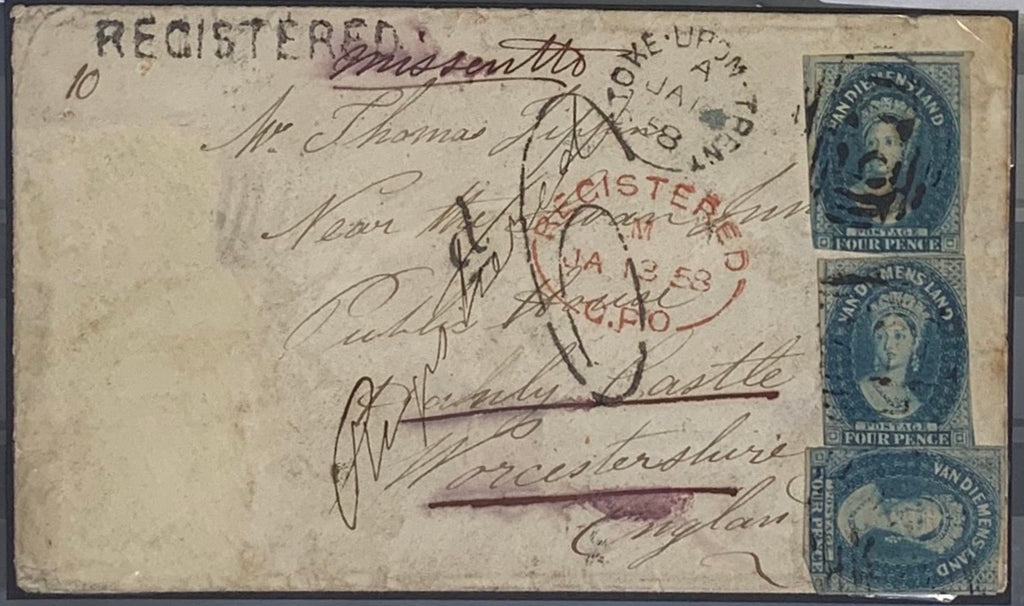 REGISTERED.
missent to
10
STOKE·UPON·TRENT
A
JA
58
Mr. Thomas
Near the Swan Inn
Public House
Hanly Castle
Worcestershire
England
REGISTERED
M
JA 13 58
G.P.O
VAN DIEMENS LAND
POSTAGE
FOUR PENCE
VAN DIEMENS LAND
POSTAGE
FOUR PENCE
VAN DIEMENS LAND
POSTAGE
FOUR PENCE